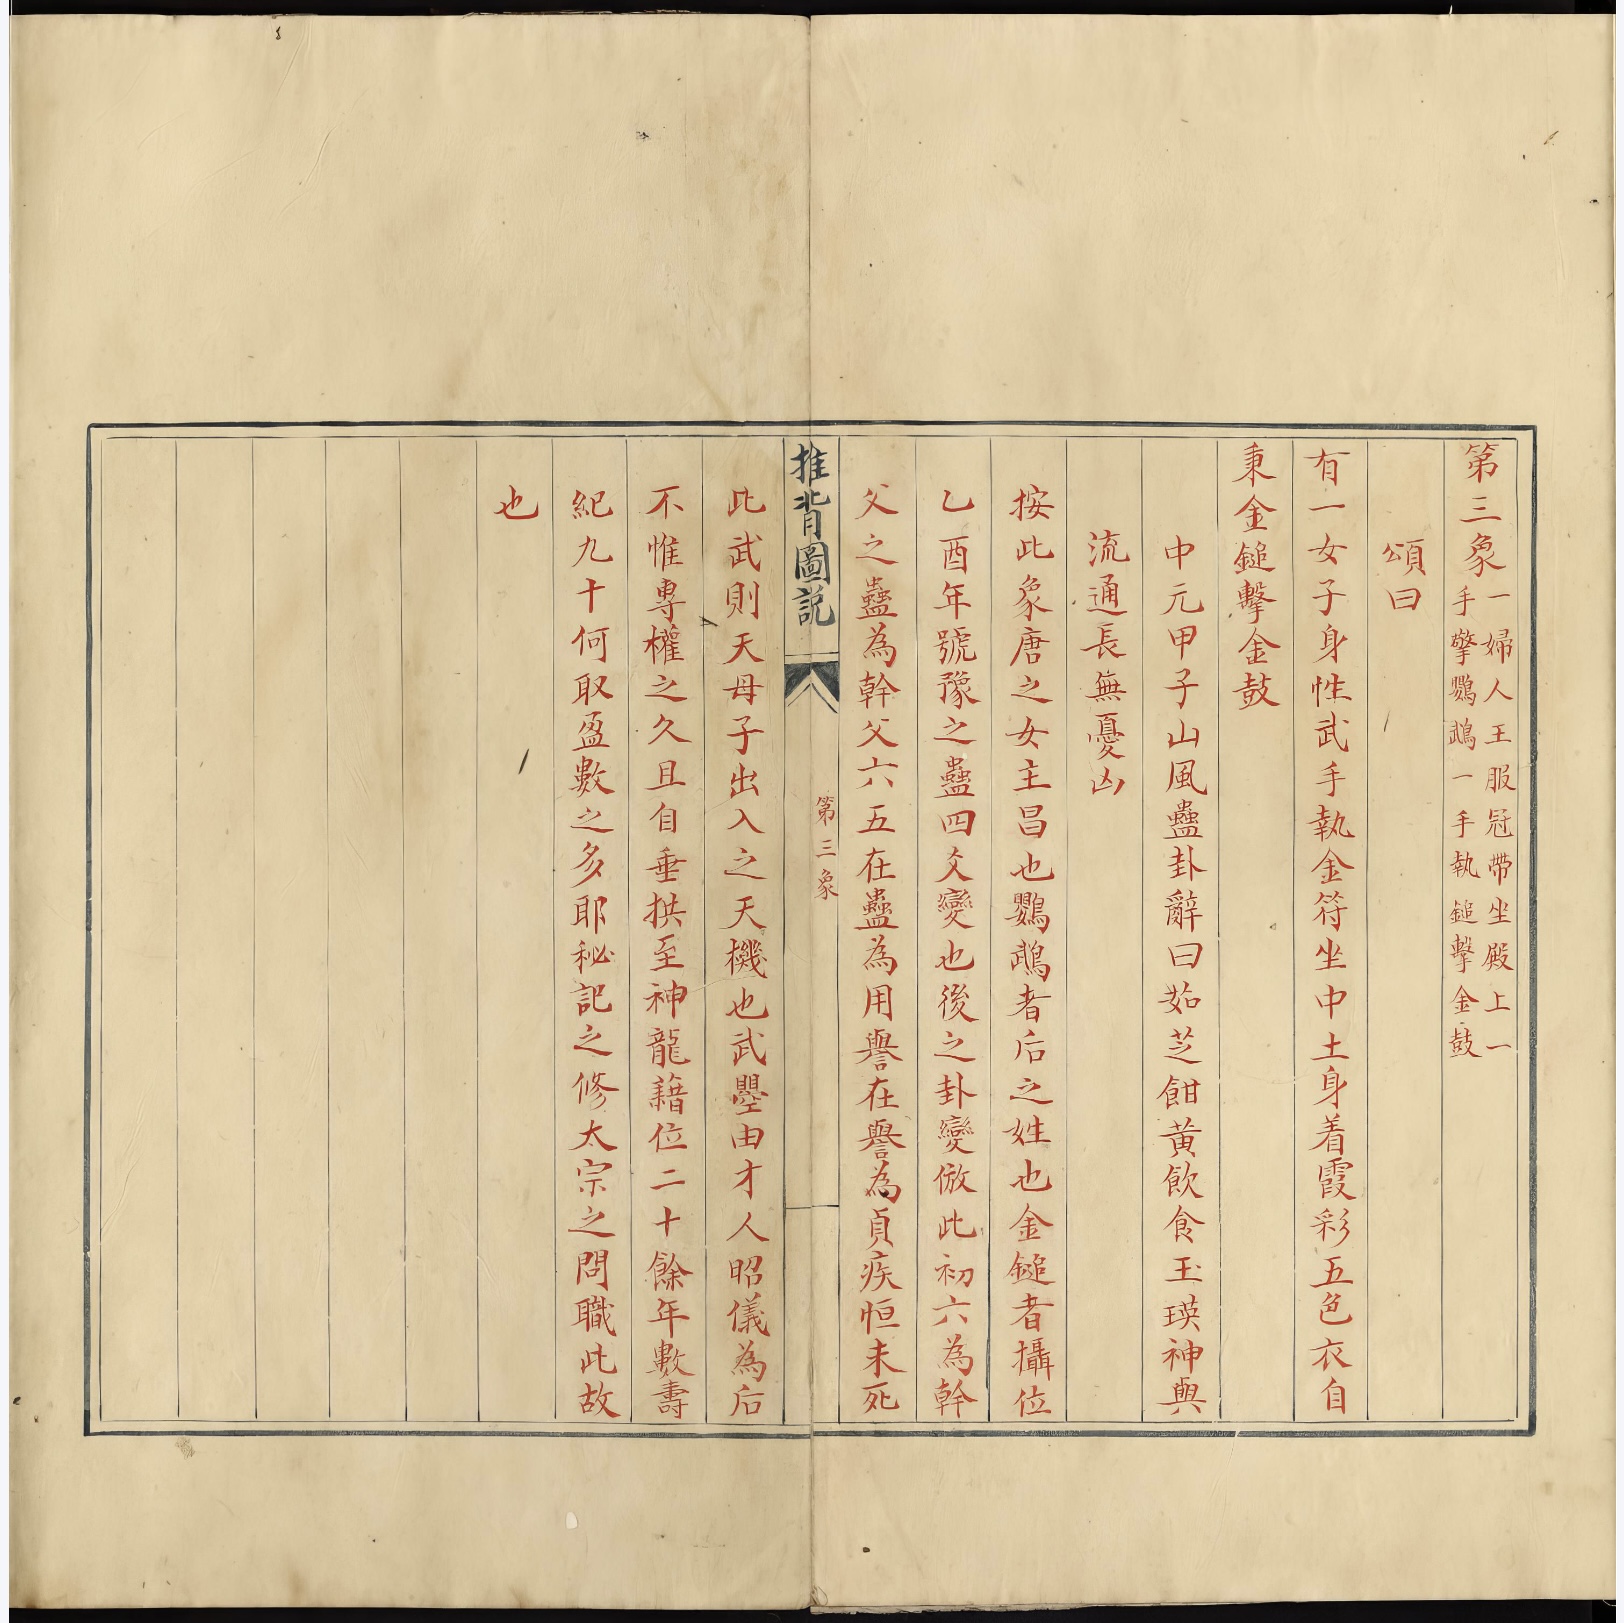 第三象一婦人王服冠帶坐殿上一
手擎鸚鵡一手執鎚擊金鼓
頌曰
有一女子身性武手執金符坐中土身着霞彩五色衣自
秉金鎚擊金鼓
中元甲子山風蠱卦辭曰茹芝餌黃飲食玉瑛神與
流通長無憂凶
按此象唐之女主昌也鸚鵡者后之姓也金鎚者攝位
乙酉年號豫之蠱四爻變也後之卦變倣此初六為幹
父之蠱為幹父六五在蠱為用譽在譽為貞疾恒未死
推背圖説
第三象
此武則天母子出入之天機也武曌由才人昭儀為后
不惟專權之久且自垂拱至神龍藉位二十餘年數壽
紀九十何取盈數之多耶秘記之修太宗之問職此故
也